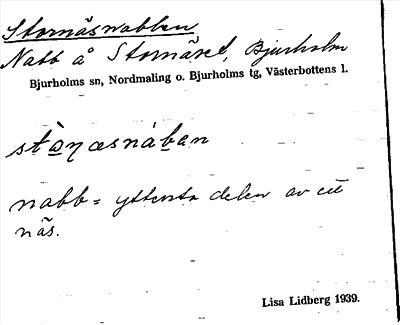 Stornäsnabben
Nabb å Stornäset, Bjurholm
Bjurholms sn, Nordmaling o. Bjurholms tg, Västerbottens l.
stò̱ɳæsnába̱n
nabb = yttersta delen av ett
näs.
Lisa Lidberg 1939.